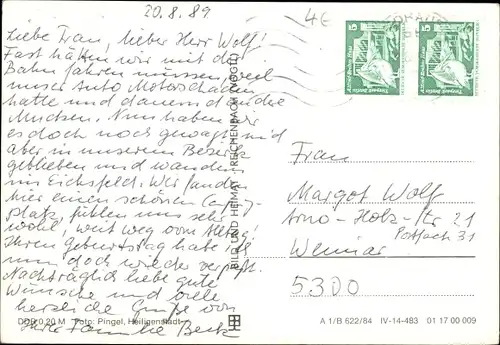 20.8.89
4€
Liebe Frau, lieber Herr Wolf!
Fast hätten wir mit der
Bahn fahren müssen, weil
unser Auto Motorschaden
hatte und dauernd andre
Mucken. Nun haben wir
es doch noch gewagt, sind
aber in unserem Bezirk
geblieben und wandern
im Eichsfeld. Wir fanden
hier einen schönen Camping-
platz, fühlen uns sehr
wohl, weit weg vom Alltag!
Ihren Geburtstag habe ich
nun doch wieder verpaßt.
Nachträglich liebe gute
Wünsche und viele
herzliche Grüße von
Ihrer Familie Beck
DDR 0,20 M Foto: Pingel, Heiligenstadt
BILD UND HEIMAT REICHENBACH (VOGTL)
5
Tierpark Berlin
5
Tierpark Berlin
Frau
Margot Wolf
Arno-Holz-Str 21
Postfach 31
Weimar
5300
A 1/B 622/84 IV-14-483 01 17 00 009